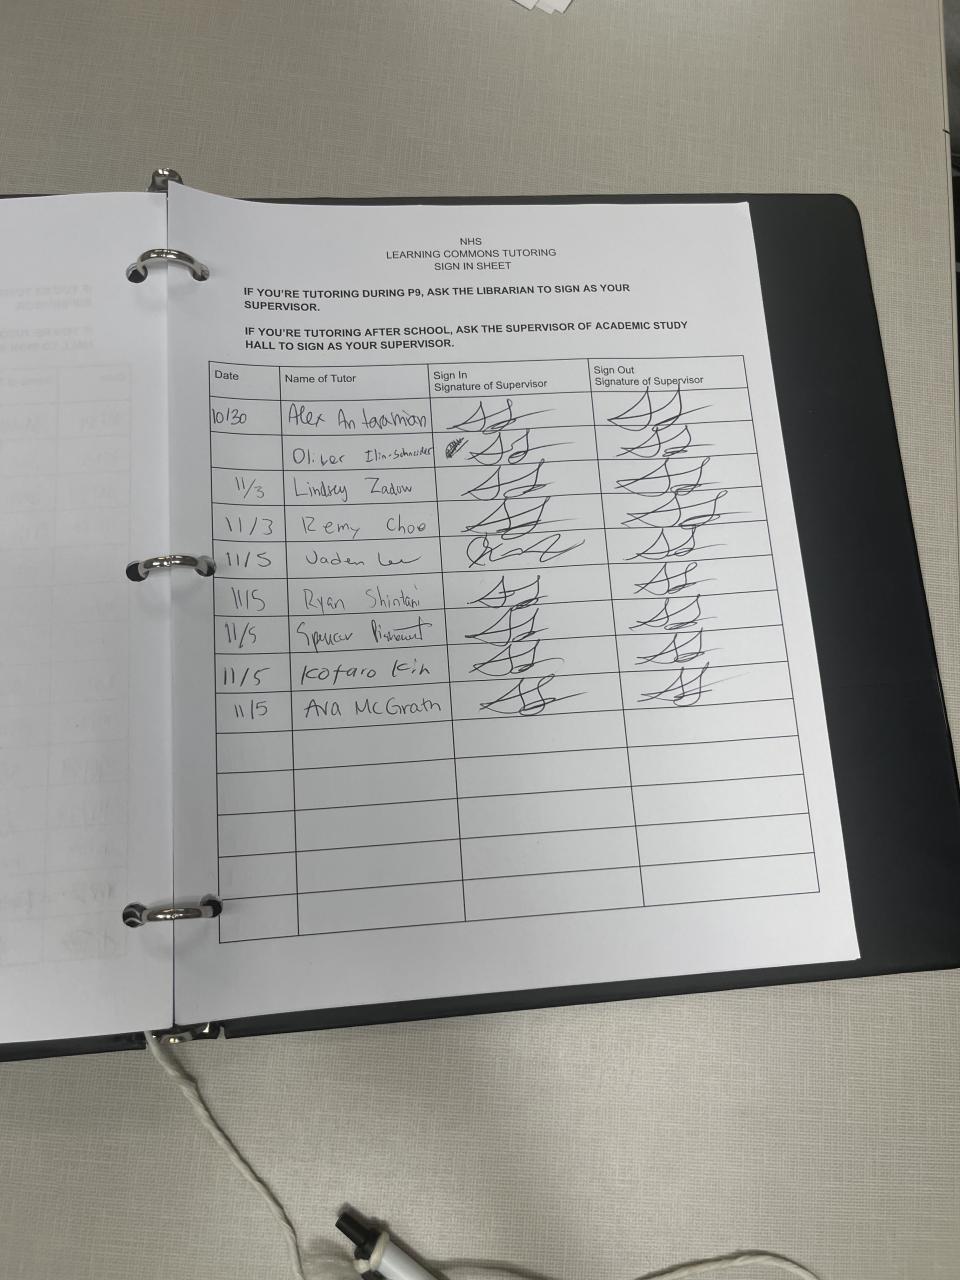 NHS
LEARNING COMMONS TUTORING
SIGN IN SHEET
IF YOU'RE TUTORING DURING P9, ASK THE LIBRARIAN TO SIGN AS YOUR
SUPERVISOR.
IF YOU'RE TUTORING AFTER SCHOOL, ASK THE SUPERVISOR OF ACADEMIC STUDY
HALL TO SIGN AS YOUR SUPERVISOR.
Date Name of Tutor Sign In Signature of Supervisor Sign Out Signature of Supervisor
10/30 Alex Antaramian
Oliver Ilin-Schneider
11/3 Lindsey Zadow
11/3 Remy Choe
11/5 Jaden Lee
11/5 Ryan Shintani
11/5 Spencer
11/5 Kotaro Kin
11/5 Ava McGrath